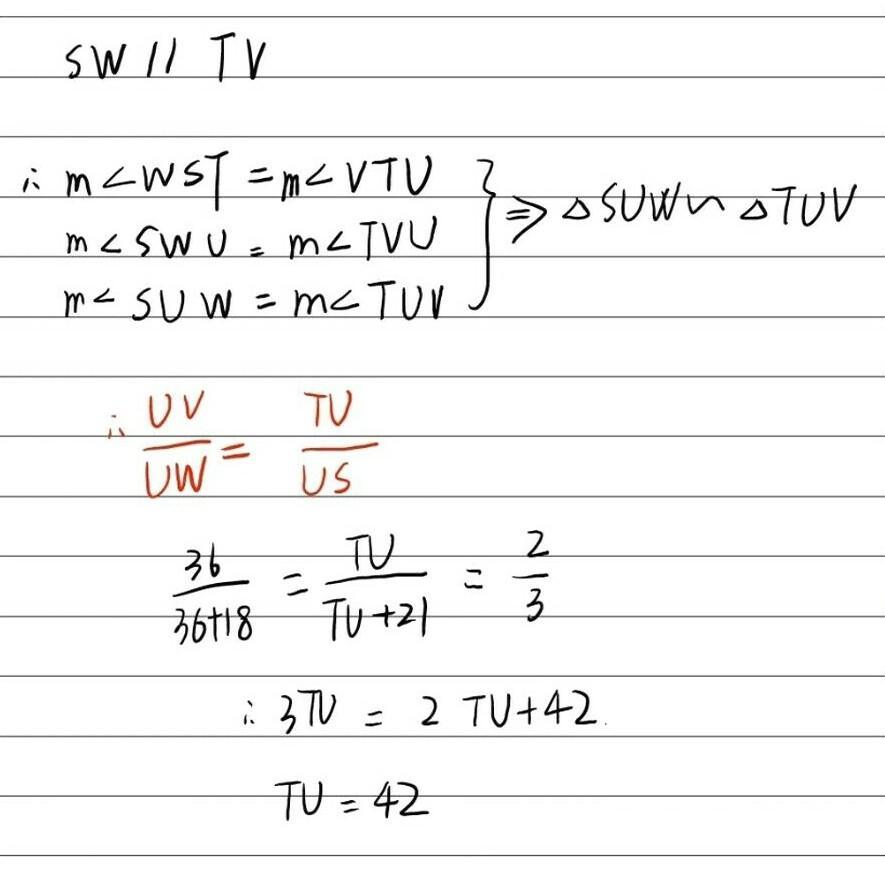 SW // TV
∴ m<WST = m<VTU
m<SWU = m<TVU } ⇒ △SUW ∽ △TUV
m<SUW = m<TUV
∴ UV/UW = TU/US
36/36+18 = TU/TU+21 = 2/3
∴ 3TU = 2 TU+42.
TU = 42